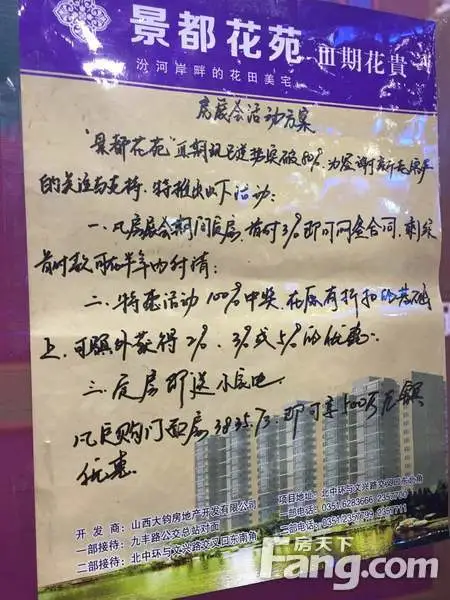 景都花苑 III期花貴
汾河岸畔的花田美宅
房展会活动方案
"景都花苑"III期现已逆势突破80%,为答谢
的关注与支持,特推出以下活动:
一、凡房展会期间定房,首付3%即可网签合同,剩余
首付款可在半年内付清;
二、特惠活动100%中奖,在原有折扣的基础
上,可额外获得2%、3%或5%的优惠.
三、定房即送小房电.
凡定购门配房 即可享
优惠
开发商:山西大钧房地产开发有限公司
一部接待:九丰路公交总站对面
二部接待:北中环与文兴路交叉口东南角
项目地址:北中环与文兴路交叉口东南角
一部电话:0351-6283666
二部电话:0351-2357799 2357711
房天下
Fang.com